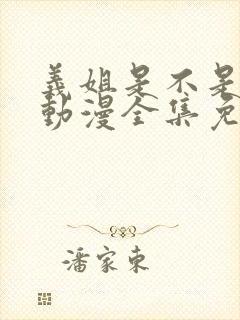 義姐是不是
動漫全集免
潘家東